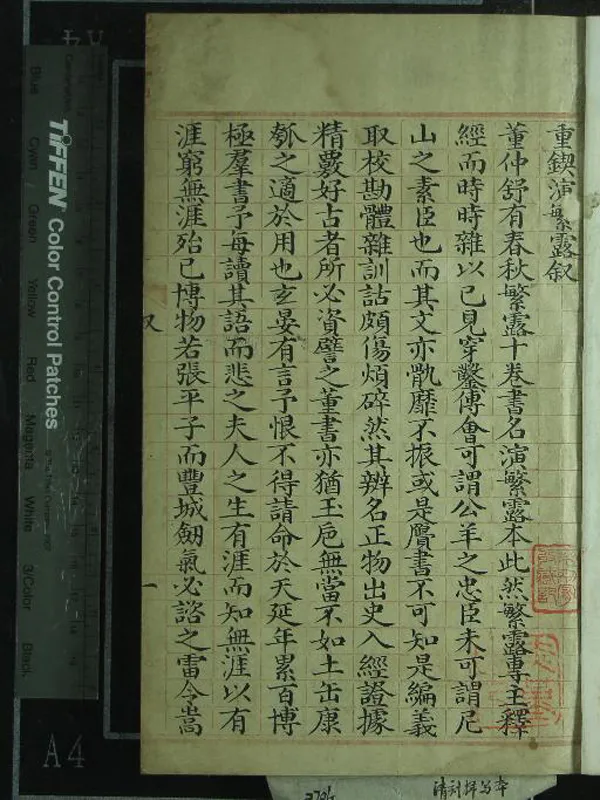 重鍥演繁露叙
董仲舒有春秋繁露十卷書名演繁露本此然繁露專主釋
經而時時雜以己見穿鑿傅會可謂公羊之忠臣未可謂尼
山之素臣也而其文亦骫靡不振或是贋書不可知是編義
取校勘體雜訓詁頗傷煩碎然其辨名正物出史入經證據
精覈好古者所必資譬之董書亦猶玉巵無當不如土缶康
瓠之適於用也玄晏有言予恨不得請命於天延年累百博
極羣書予每讀其語而悲之夫人之生有涯而知無涯以有
涯窮無涯殆已博物若張平子而豐城劒氣必諮之雷令嵩
叙
一
TIFFEN Color Control Patches
Blue
Cyan
Green
Yellow
Red
Magenta
White
3/Color
Black
A4
清刻擇写本